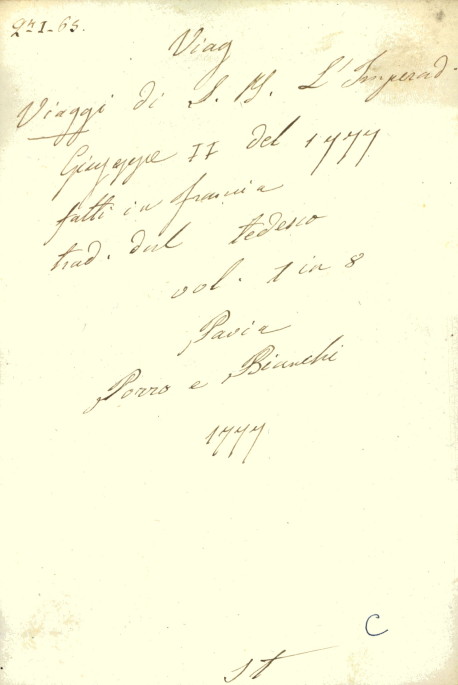 Viag
Viaggi di S. M. L'Imperad.
Giuseppe II del 1777
fatti in francia
trad. dal tedesco
vol. 1 in 8
Pavia
Porro e Bianchi
1777
C
st